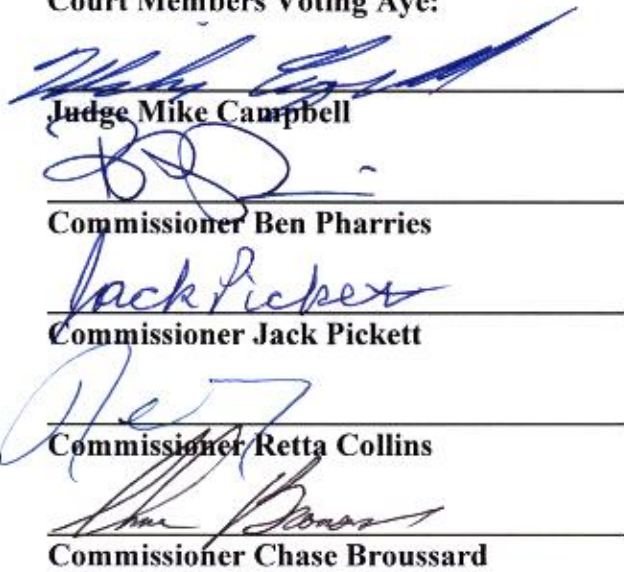 Court Members Voting Aye:
Judge Mike Campbell
Commissioner Ben Pharries
Jack Pickett
Commissioner Jack Pickett
Commissioner Retta Collins
Commissioner Chase Broussard